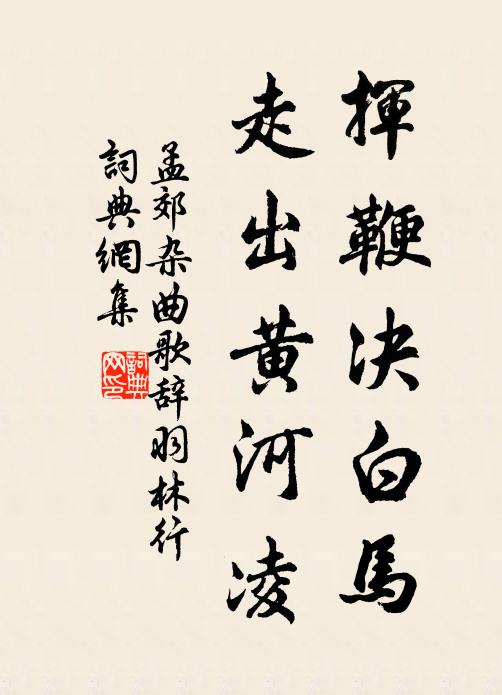 揮鞭決白馬
走出黄河凌
孟郊杂曲歌辞羽林行
詞典網集
詞典网印